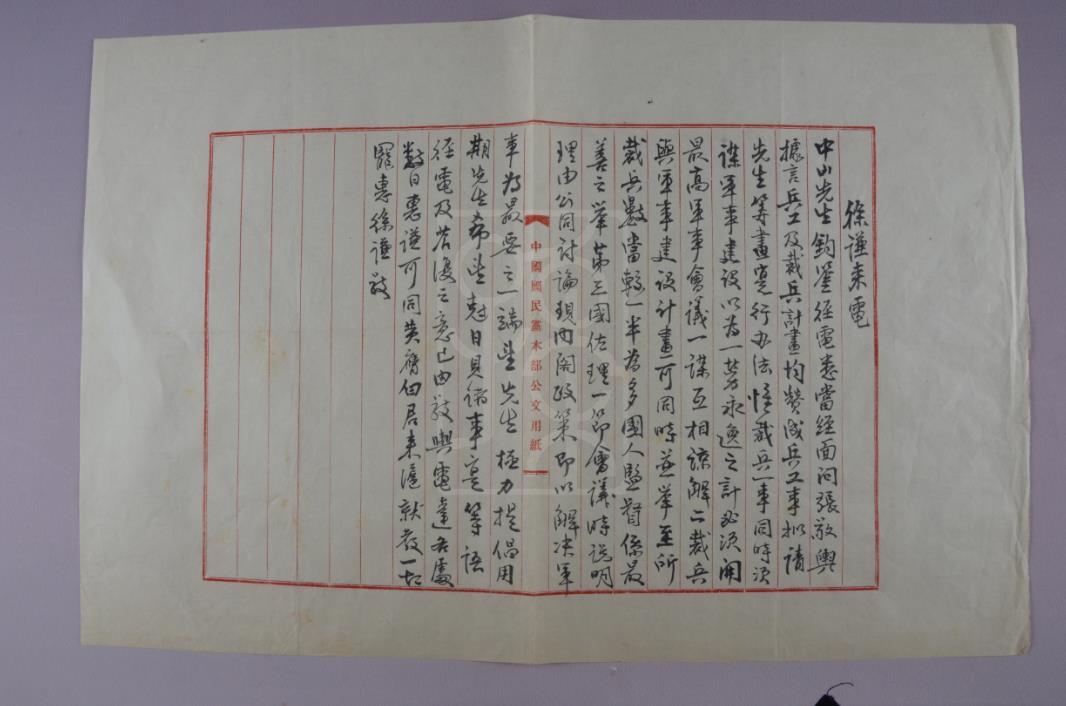 徐謙来電
中山先生鈞鑒径電悉當経面洵張敬輿
據言兵工及裁兵計畫均赞成兵工事擬請
先生筹畫實行办法惟裁兵一事同時須
謀軍事建設以為一劳永逸之計必須開
最高軍事會議一謀互相諒解二裁兵
與軍事建設計畫可同時並举至所
裁兵數當較一半為多國人監督係最
善之举第三國佐理一節會議時説明
理由公同討論現内閣政策即以解决軍
事為最要之一端望先生極力提倡用
期先生希望尅日見諸事实等語
径電及苔復之意已由敬輿電達各處
數日惠謙可同黄膺白君来滬就教一切
寵惠徐謙敬
中國國民黨本部公文用紙